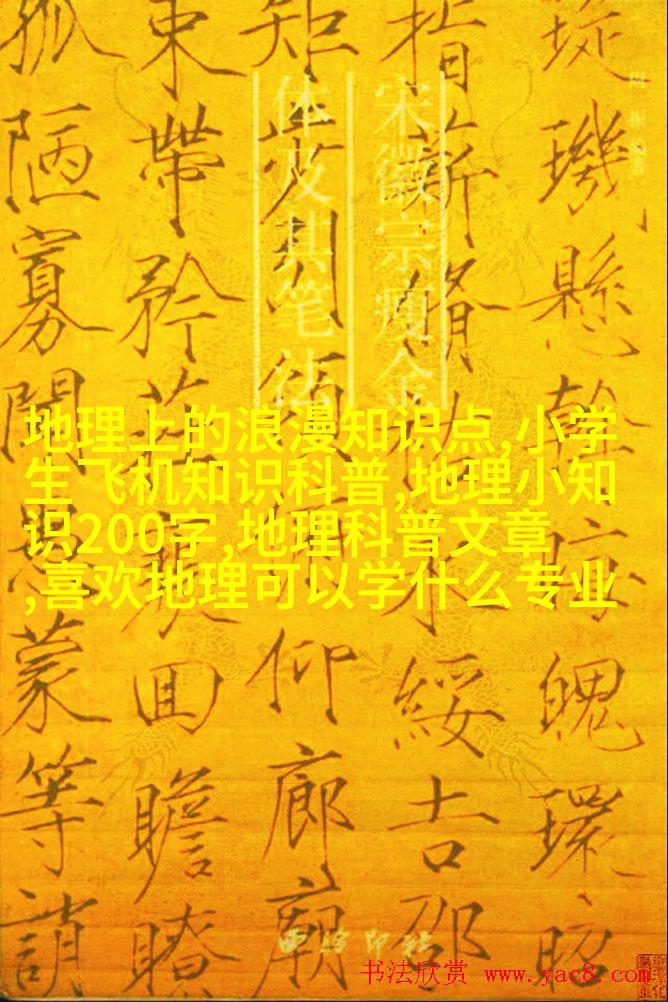 璇璣懸斡晦魄環照
指薪修祜永綏吉邵
矩步引領俯仰廊廟
束帶矜莊徘回瞻眺
孤陋寡聞愚蒙等誚
宋徽宗瘦金
体及其笔法
地理上的浪漫知识点,小学
生飞机知识科普,地理小知
识200字,地理科普文章
,喜欢地理可以学什么专业
西泠印社
书法欣赏 www.yac8.com